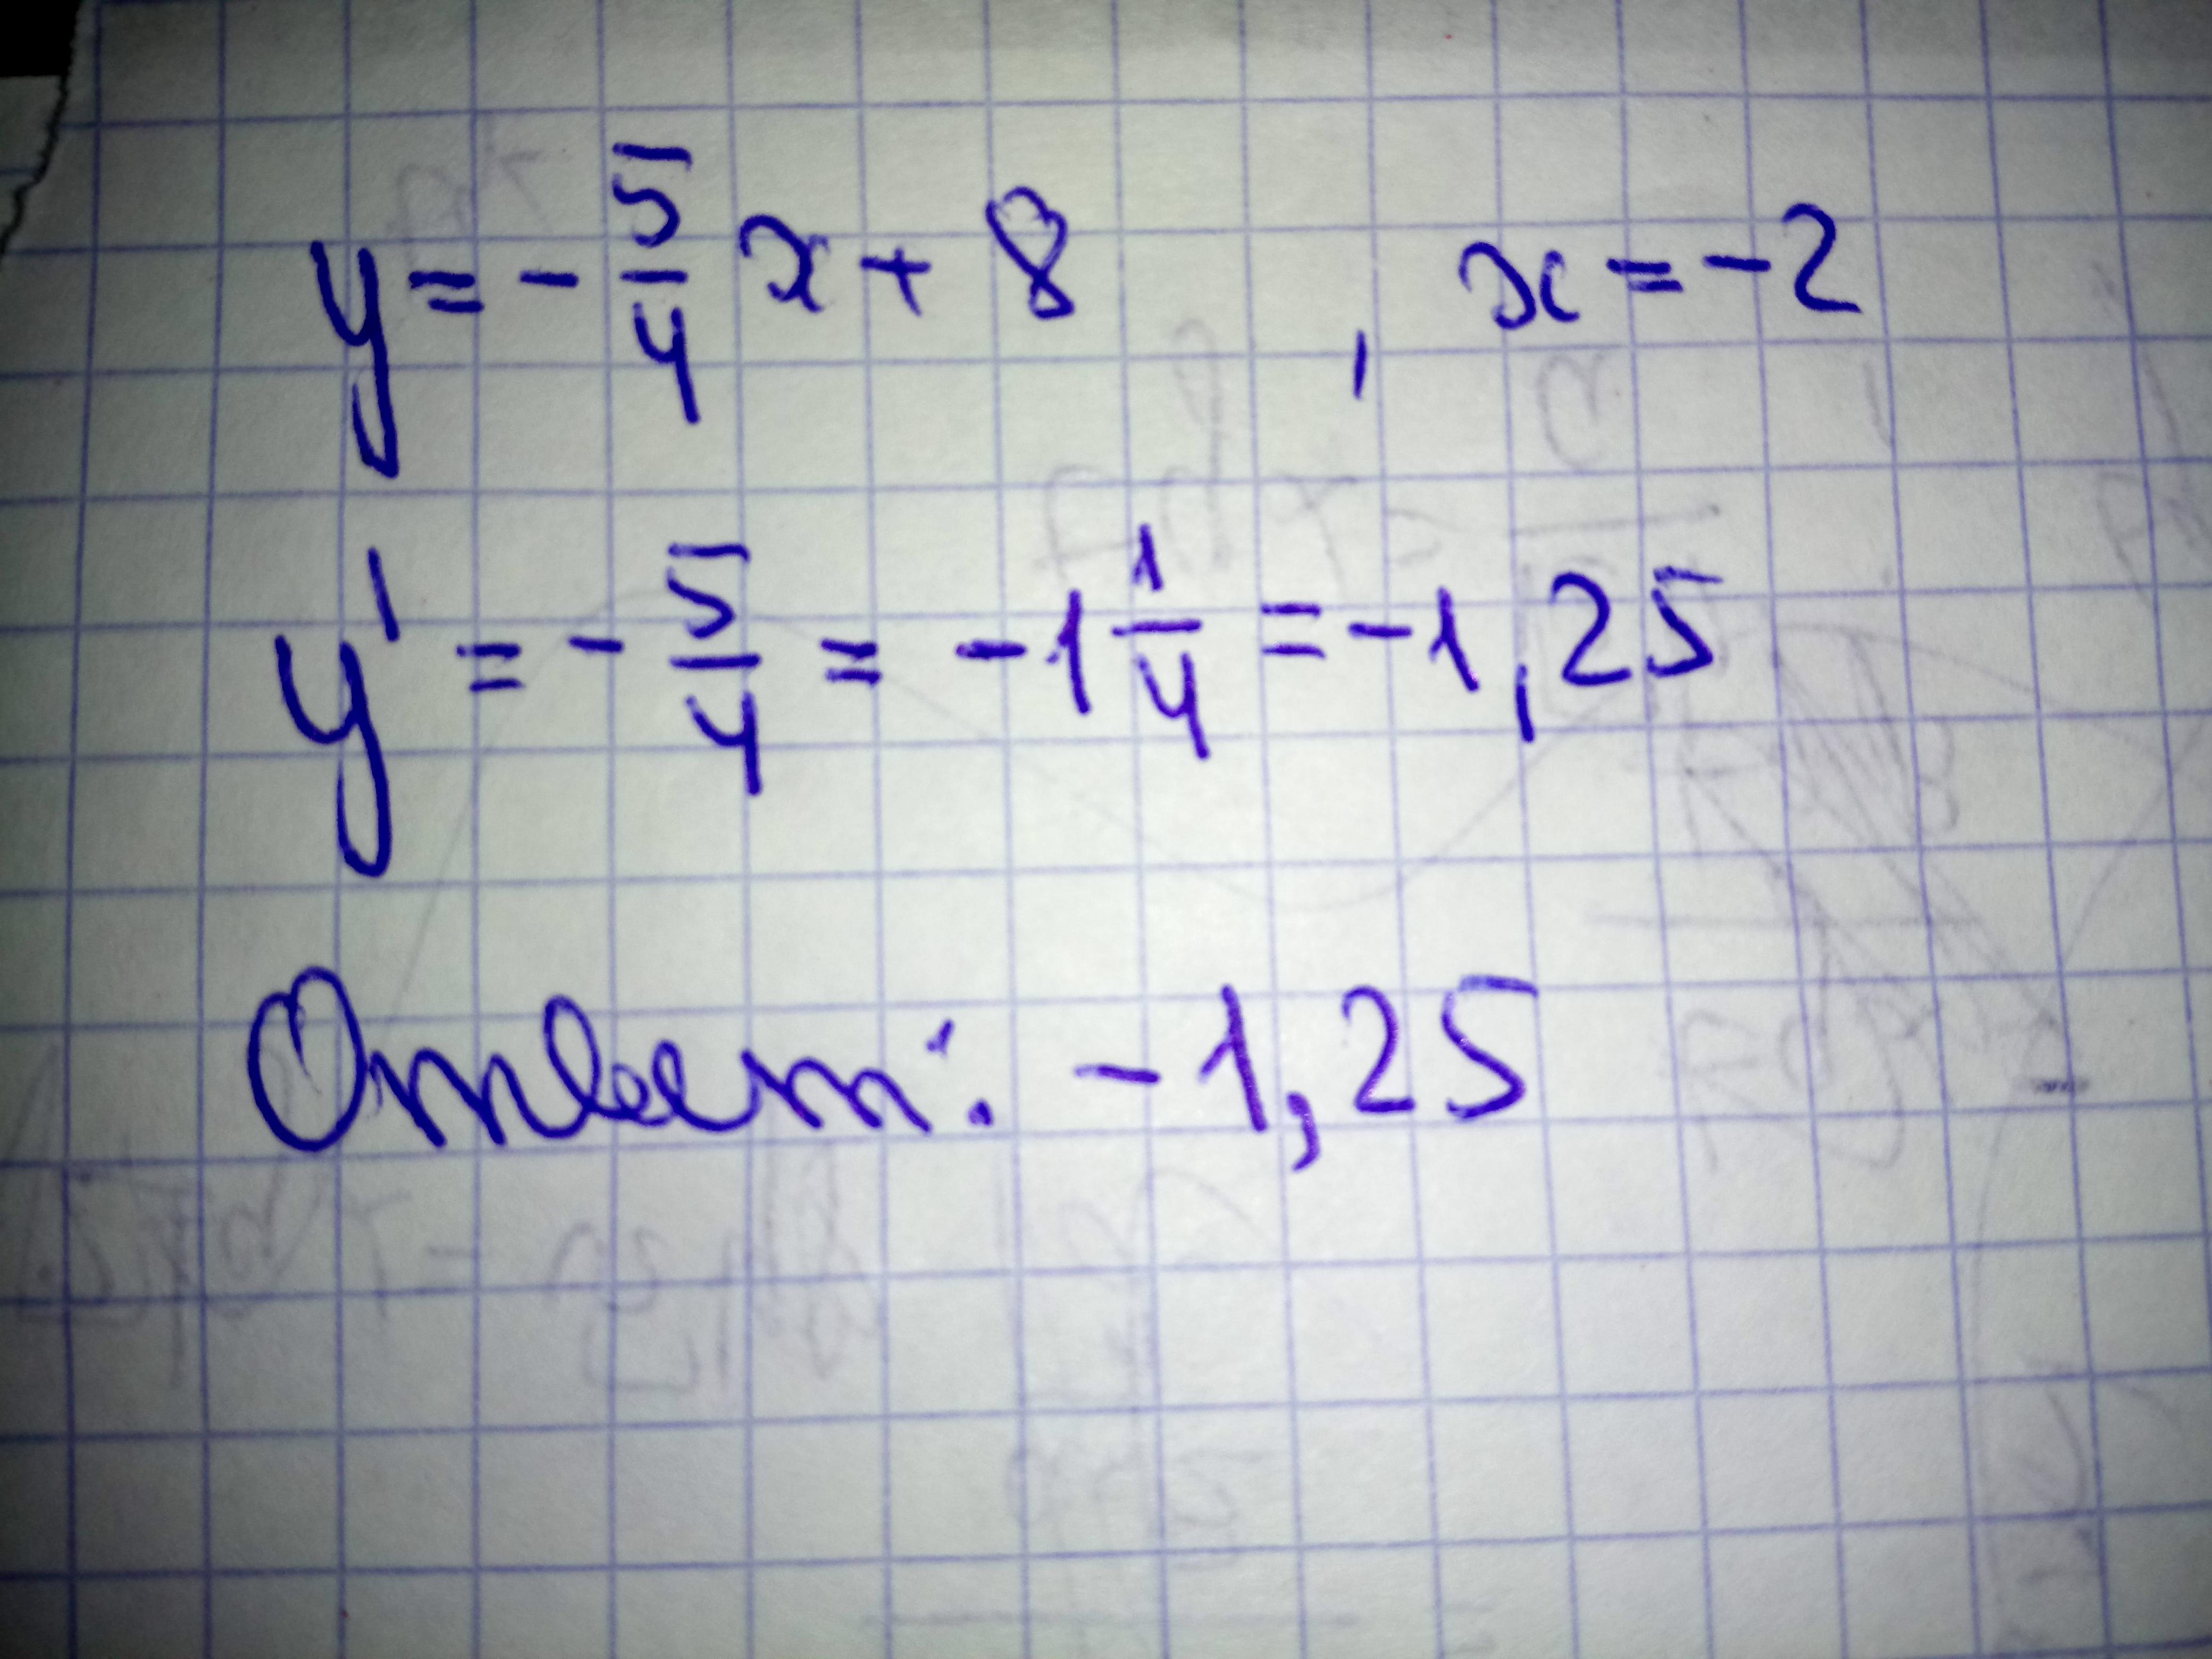 y = - 5/4 x + 8 , x = -2
y' = - 5/4 = -1 1/4 = -1,25
Ответ: -1,25